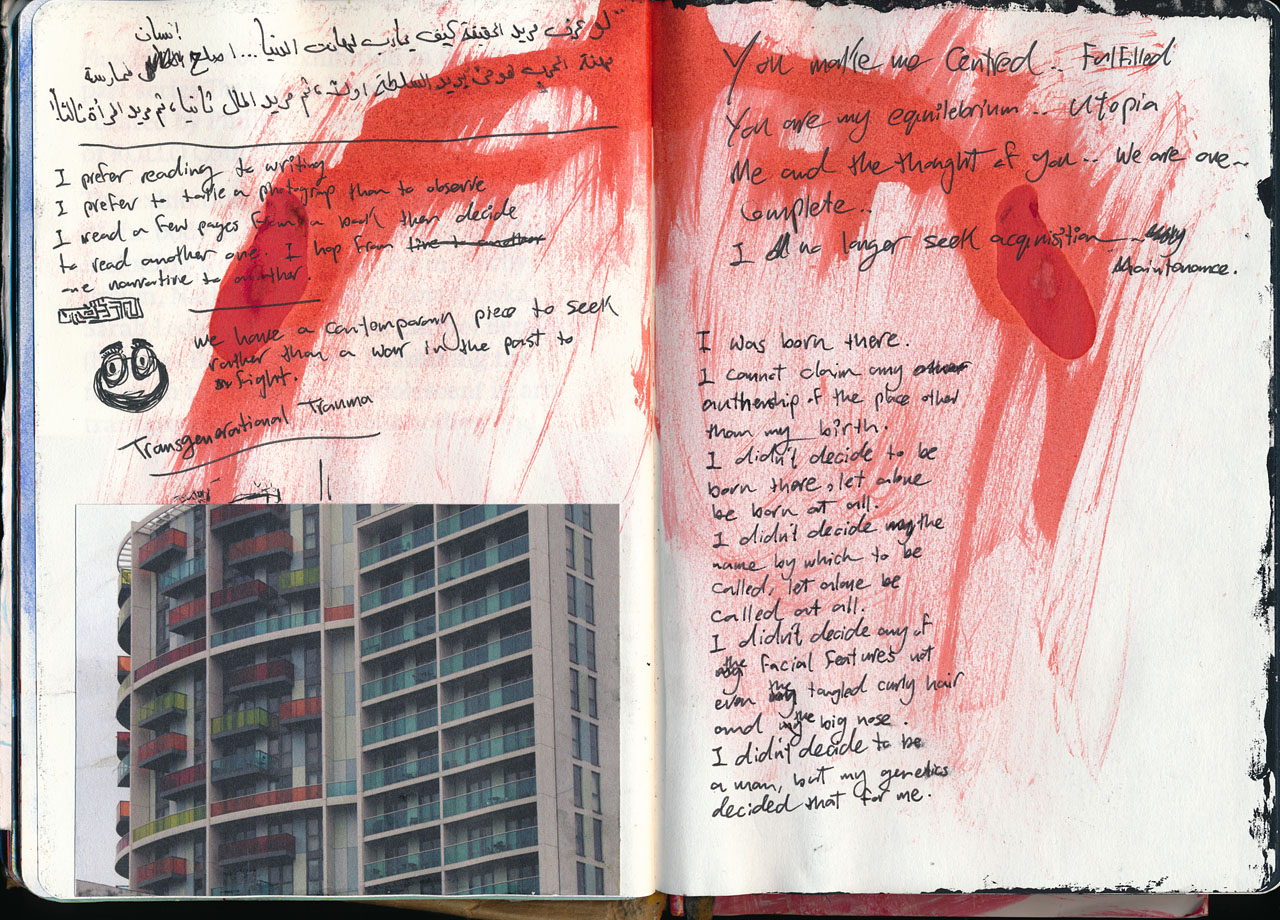 "لو عرف مريد الحقيقة كيف يحارب لهانت الدنيا... اصلح انسان لممارسة
مهنة الحب هو من يريد السلطة اولا، ثم مريد المال ثانيا، ثم مريد المرأة ثالثا"
I prefer reading to writing
I prefer to take a photograp than to observe
I read a few pages from a book then decide
to read another one. I hop from line to another
one narrative to another.
we have a contemporary piece to seek
rather than a war in the past to
fight.
Transgenerational Trauma
You make me Centred.. Fulfilled
You are my equilibrium... Utopia
Me and the thought of you.. We are one..
Complete..
I no longer seek acquisition...
Maintenance.
I was born there.
I cannot claim any other
authership of the place other
than my birth.
I didn't decide to be
born there, let alone
be born at all.
I didn't decide the
name by which to be
called, let alone be
called at all.
I didn't decide any of
the facial features not
even the tangled curly hair
and the big nose.
I didn't decide to be
a man, but my genetics
decided that for me.